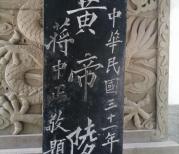 中華民國三十年
黃帝陵
蔣中正敬題